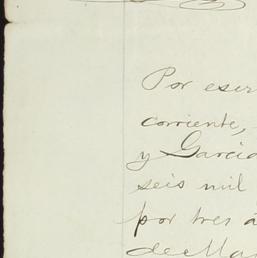 Por escr
corriente,
y Garcia
seis mil
por tres a
de Ma